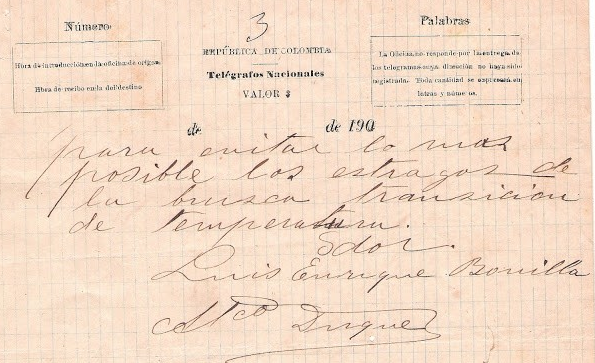 3
Número
Palabras
REPÚBLICA DE COLOMBIA
Telégrafos Nacionales
VALOR $
Hora de introducción en la oficina de origen
Hora de recibo en la del destino
La Oficina no responde por la entrega de
los telegramas cuya dirección no haya sido
registrada. Toda cantidad se expresará en
letras y números.
de de 190
para evitar lo mas
posible los estragos de
la brusca transicion
de temperatura.
Sdor.
Luis Enrique Bonilla
Duque